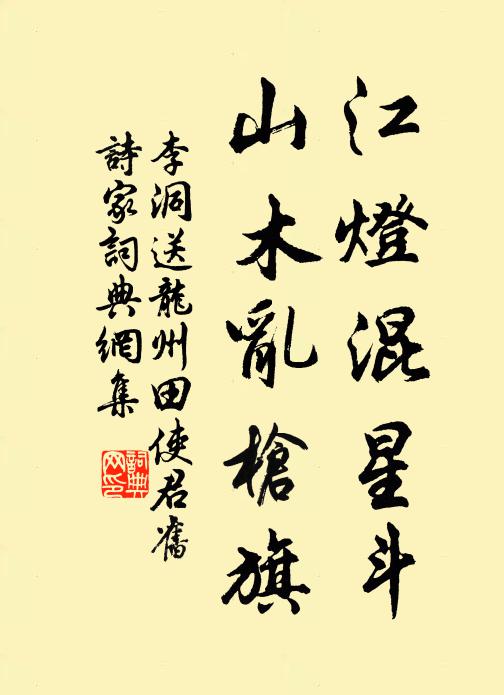 江燈混星斗
山木亂槍旗
李洞送龍州田使君舊
詩家詞典網集
詞典网印